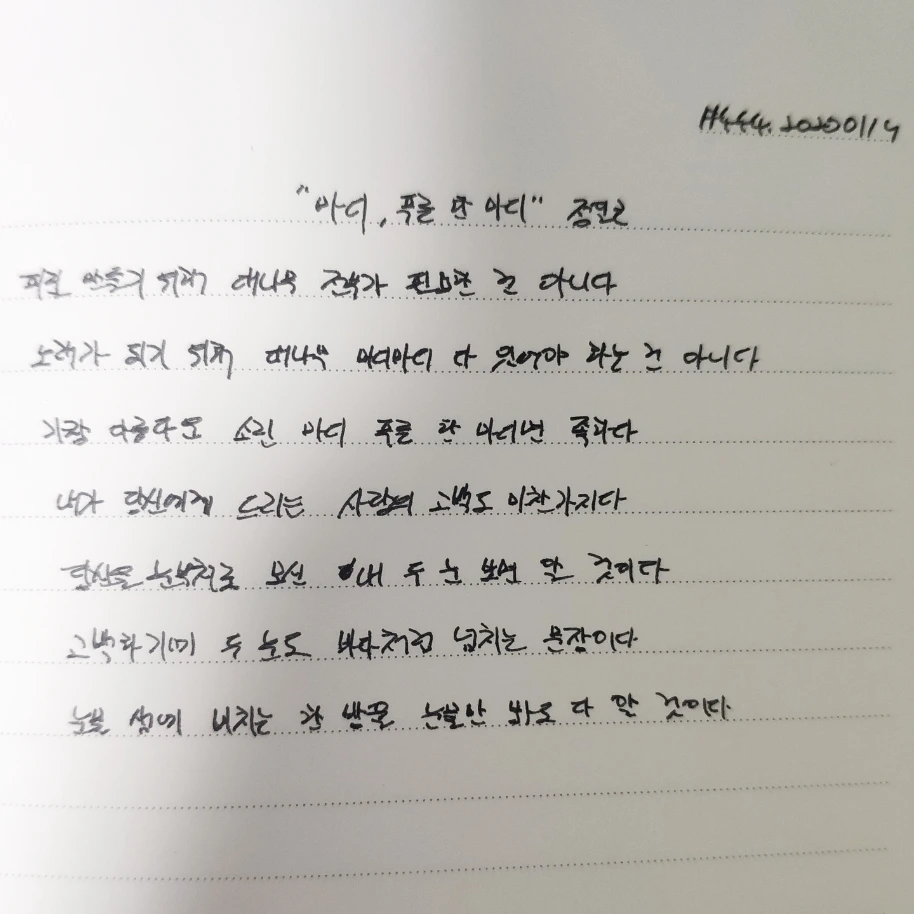 #444. 20200114
"마디, 푸른 한 마디" 정일근
피릴 만들기 위해 대나무 전부가 필요한 건 아니다
노래가 되기 위해 대나무 마디마디 다 있어야 하는 건 아니다
가장 아름다운 소린 마디 푸른 한 마디면 족하다
내가 당신에게 드리는 사랑의 고백도 마찬가지다
당신을 눈부처로 모신 내 두 눈 보면 알 것이다
고백하기에 두 눈도 바다처럼 넘치는 문장이다
눈물 샘에 비치는 한 방울 눈물만 봐도 다 알 것이다